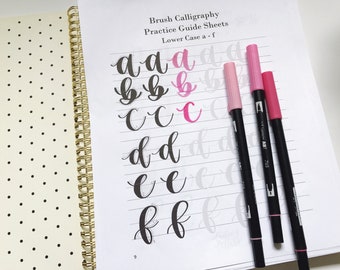 Brush Calligraphy
Practice Guide Sheets
Lower Case a - f
a a a a a a
b b b b b b
c c c c c c
d d d d
e e e e
f f f f
9